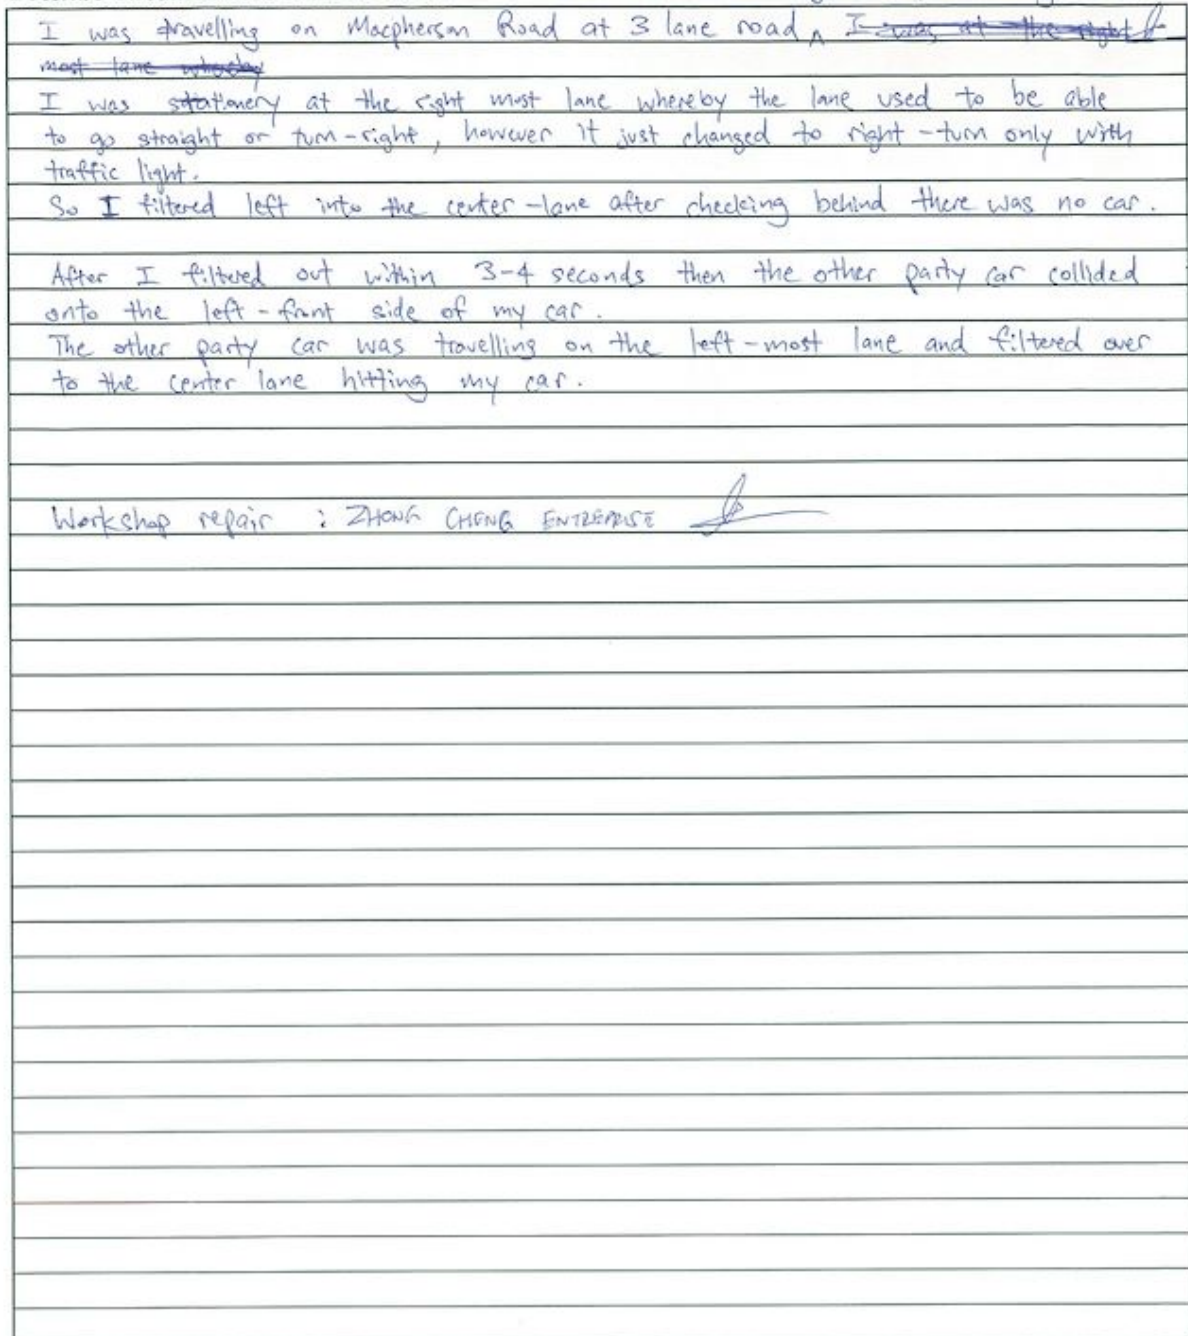 I was travelling on Macpherson Road at 3 lane road, I was at the right
most lane whereby
I was stationery at the right most lane whereby the lane used to be able
to go straight or turn-right, however it just changed to right-turn only with
traffic light.
So I filtered left into the center-lane after checking behind there was no car.
After I filtered out within 3-4 seconds then the other party car collided
onto the left-front side of my car.
The other party car was travelling on the left-most lane and filtered over
to the center lane hitting my car.
Workshop repair : ZHONG CHENG ENTREPRISE